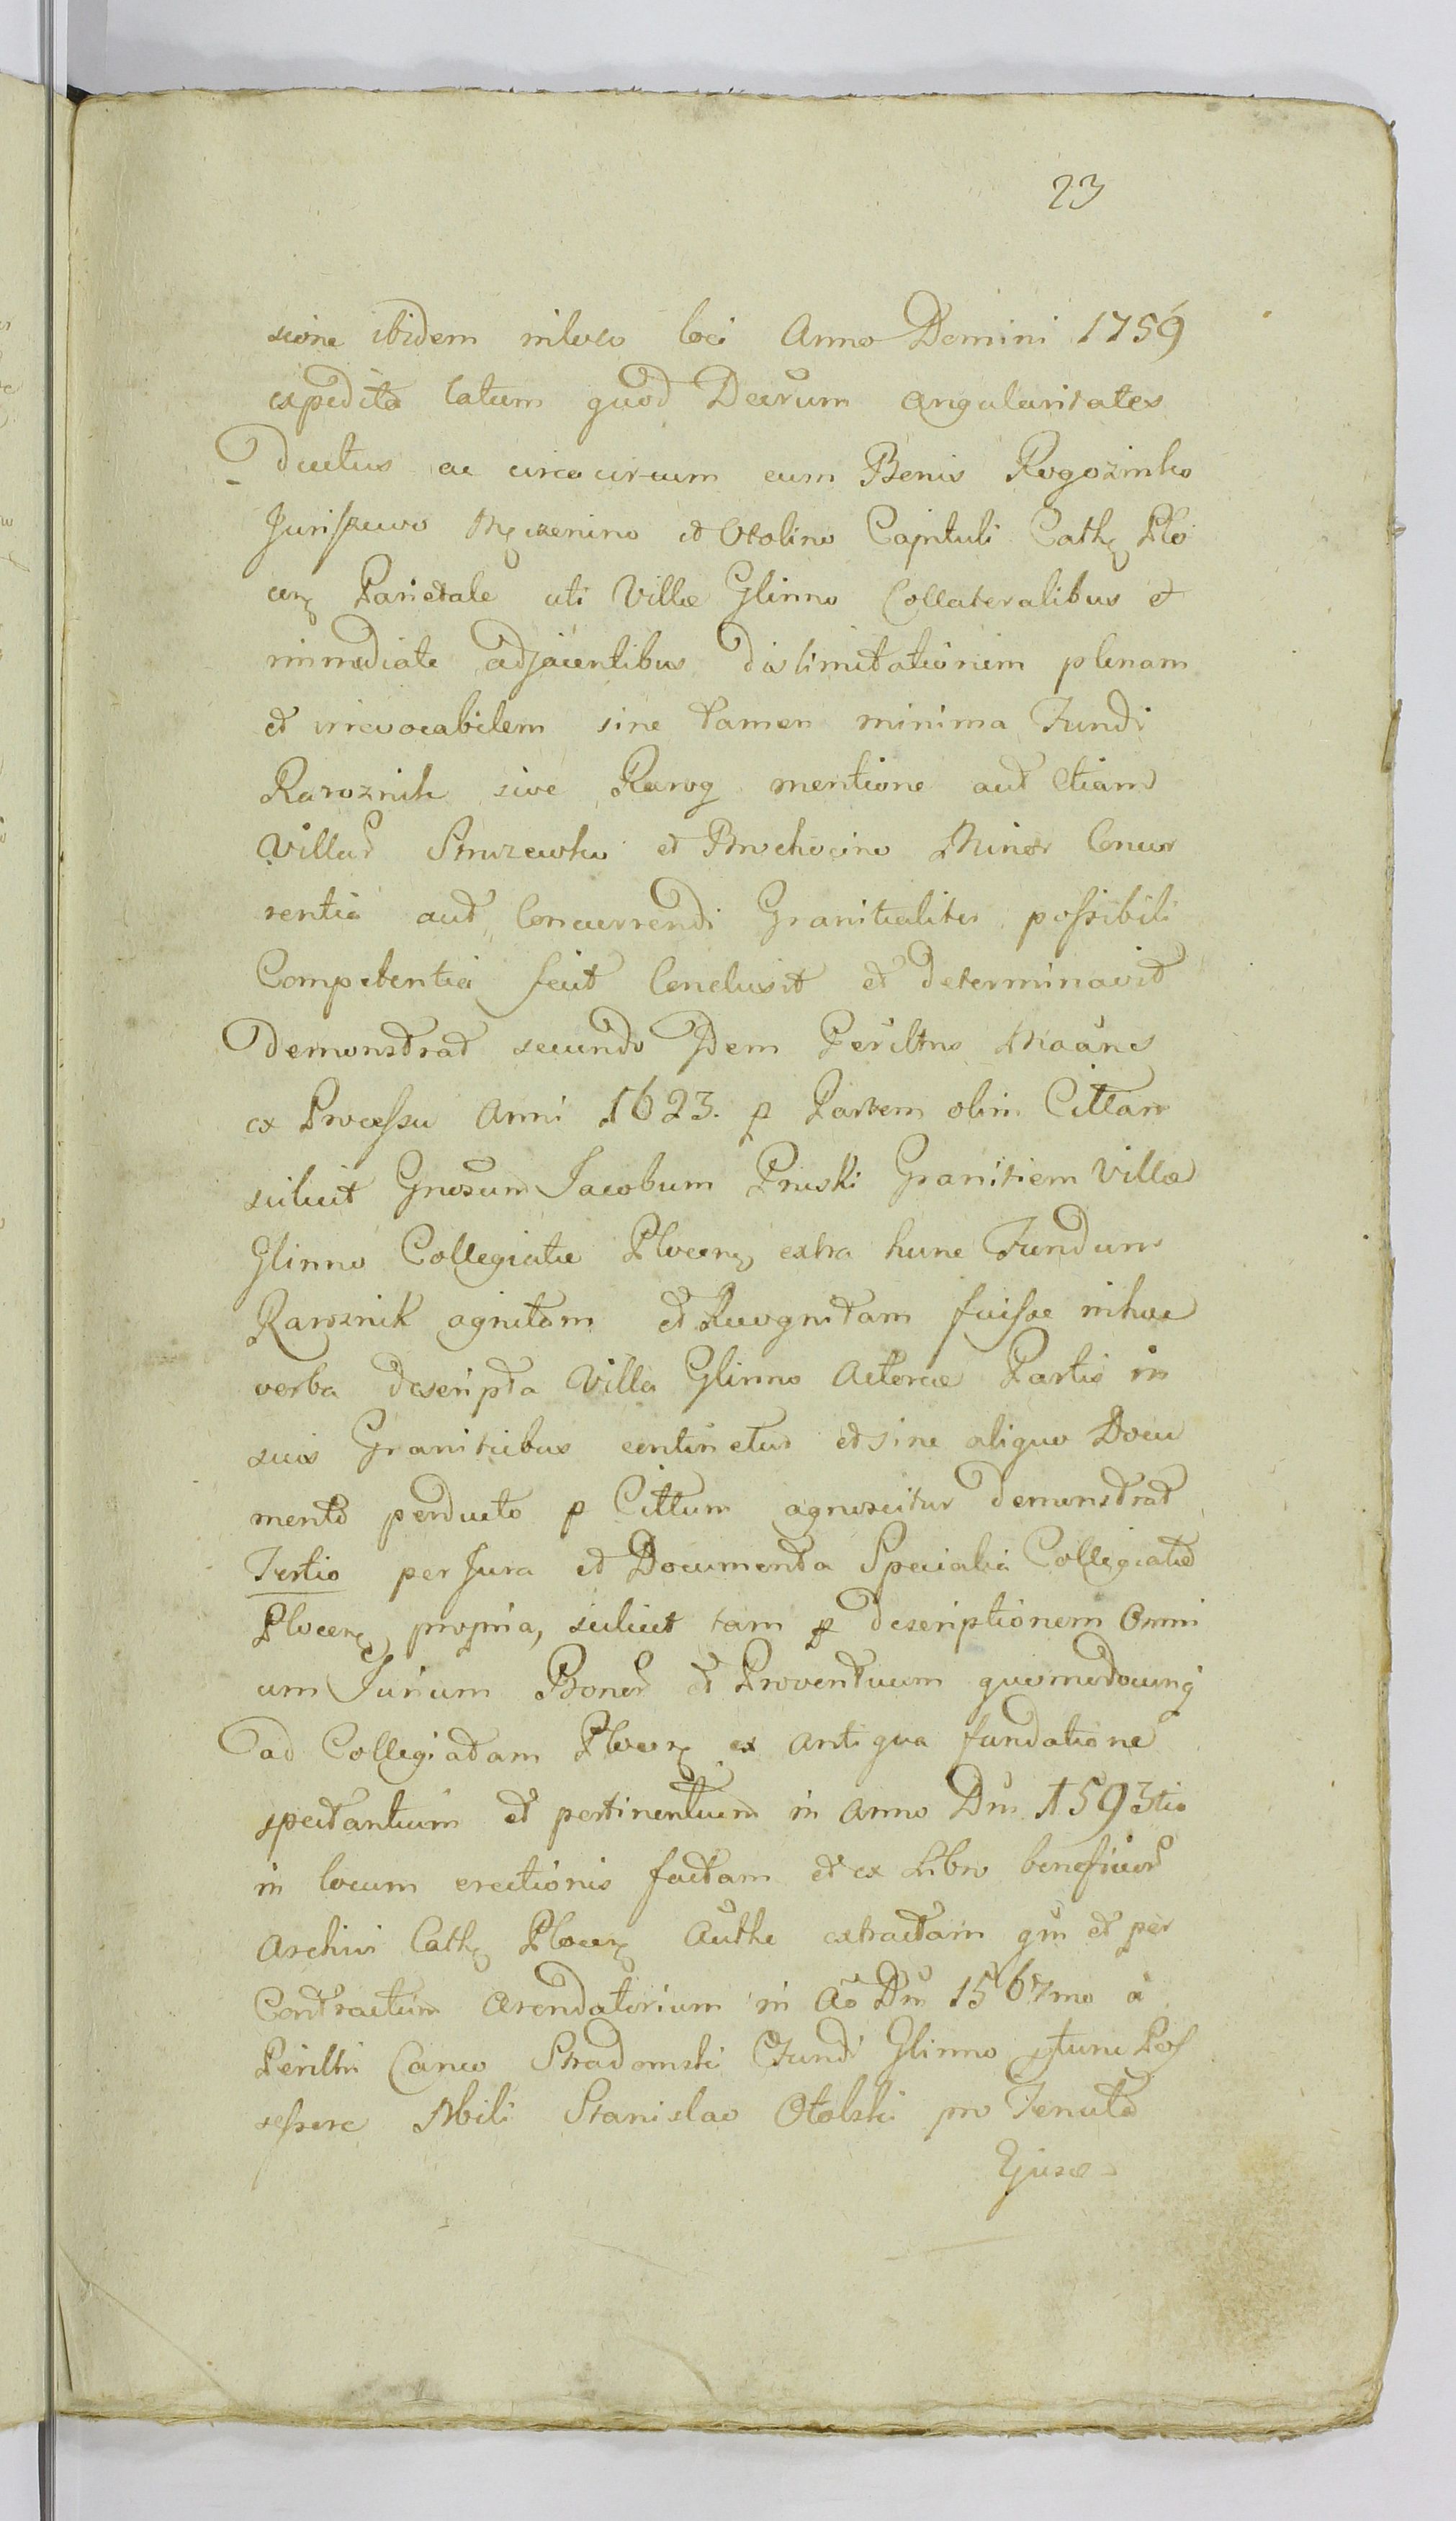 23
sione ibidem in loco loci Anno Domini 1759
expedita latum quod Dearum angularitates
Ductus ac circa circum cum Benis Rogozinko
et Otolino Capituli Cath Plo
cen Parietale uti Villæ Glinno Collateralibus et
immediate adjacentibus dislimitationem plenam
et irrevocabilem sine tamen minima Fundi
Raroznik sive Rarog mentione aut etiam
Villar Struzewko et Brochocino Minor Concur
rentia aut Concurrendi Granitialiter possibili
Competentia fecit Conclusit et determinavit
Demonstrat secundo Idem Perilltris
ex Processu Anni 1623. p Partem olim Cittam
scilicet Gnosum Jacobum Pruski Granitiem Villæ
Glinno Collegiatæ Plocen extra hunc Fundum
Raroznik agnitam et Recognitam fuisse in hæc
verba descripta Villa Glinno Actoreæ Partis in
suis Granitiebus continetur et sine aliquo Docu
mento perducto p Cittum agnoscitur demonstrat
Tertio per Jura et Documenta Specialia Collegiatæ
Plocen propria, scilicet tam p descriptionem Omni
um Jurium Bonor et Proventuum quomodocunq
ad Collegiatam Plocen ex antiqua fundatione
spectantium et pertinentium in anno Dni 1593tio
in locum erectionis factam et ex Libro beneficior
Archivi Cath Plocen Authe extractam qm et per
Contractum Arendatorium in Ao Dni 1567mo a
Perilltri Canco Stradomski Fundi Glinno ptunc Pos
sessore Nbili Stanislao Otolski pro Tenuta
Ejusd